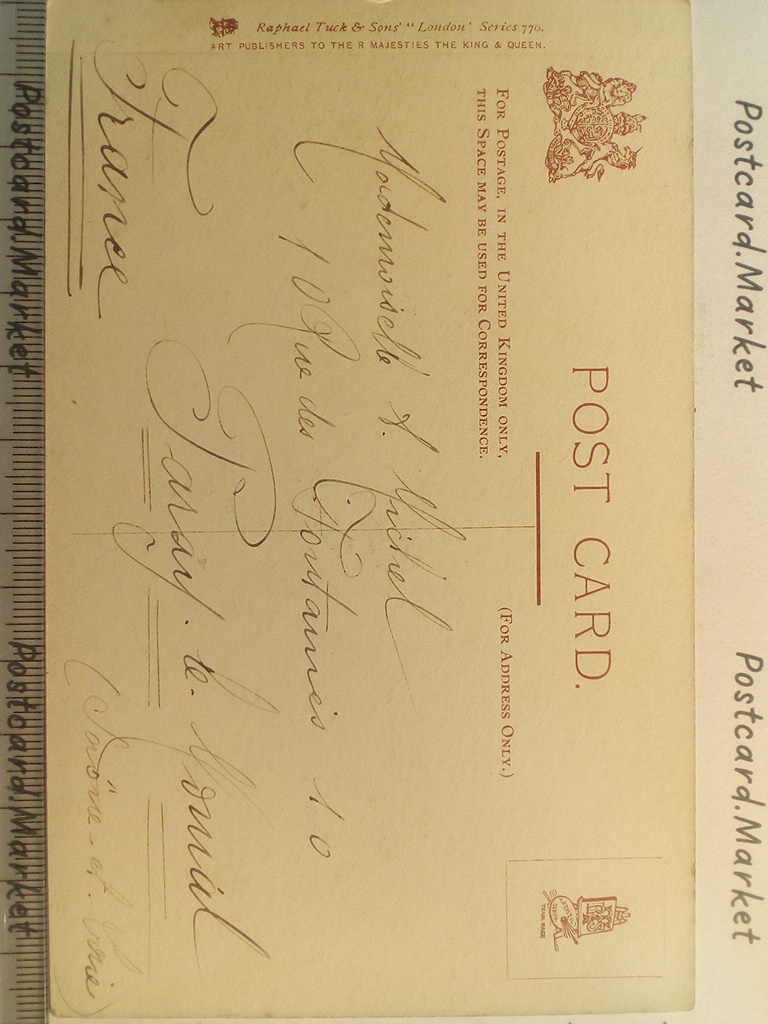 Raphael Tuck & Sons' "London" Series 770.
ART PUBLISHERS TO THEIR MAJESTIES THE KING & QUEEN.
POST CARD.
FOR POSTAGE, IN THE UNITED KINGDOM ONLY,
THIS SPACE MAY BE USED FOR CORRESPONDENCE.
(FOR ADDRESS ONLY.)
Mademoiselle A. Michel
10 Rue des Fontaines 10
Paray-le-Monial
(Saône-et-Loire)
France
TRADE MARK
Postcard.Market
Postcard.Market
Postcard.Market
Postcard.Market